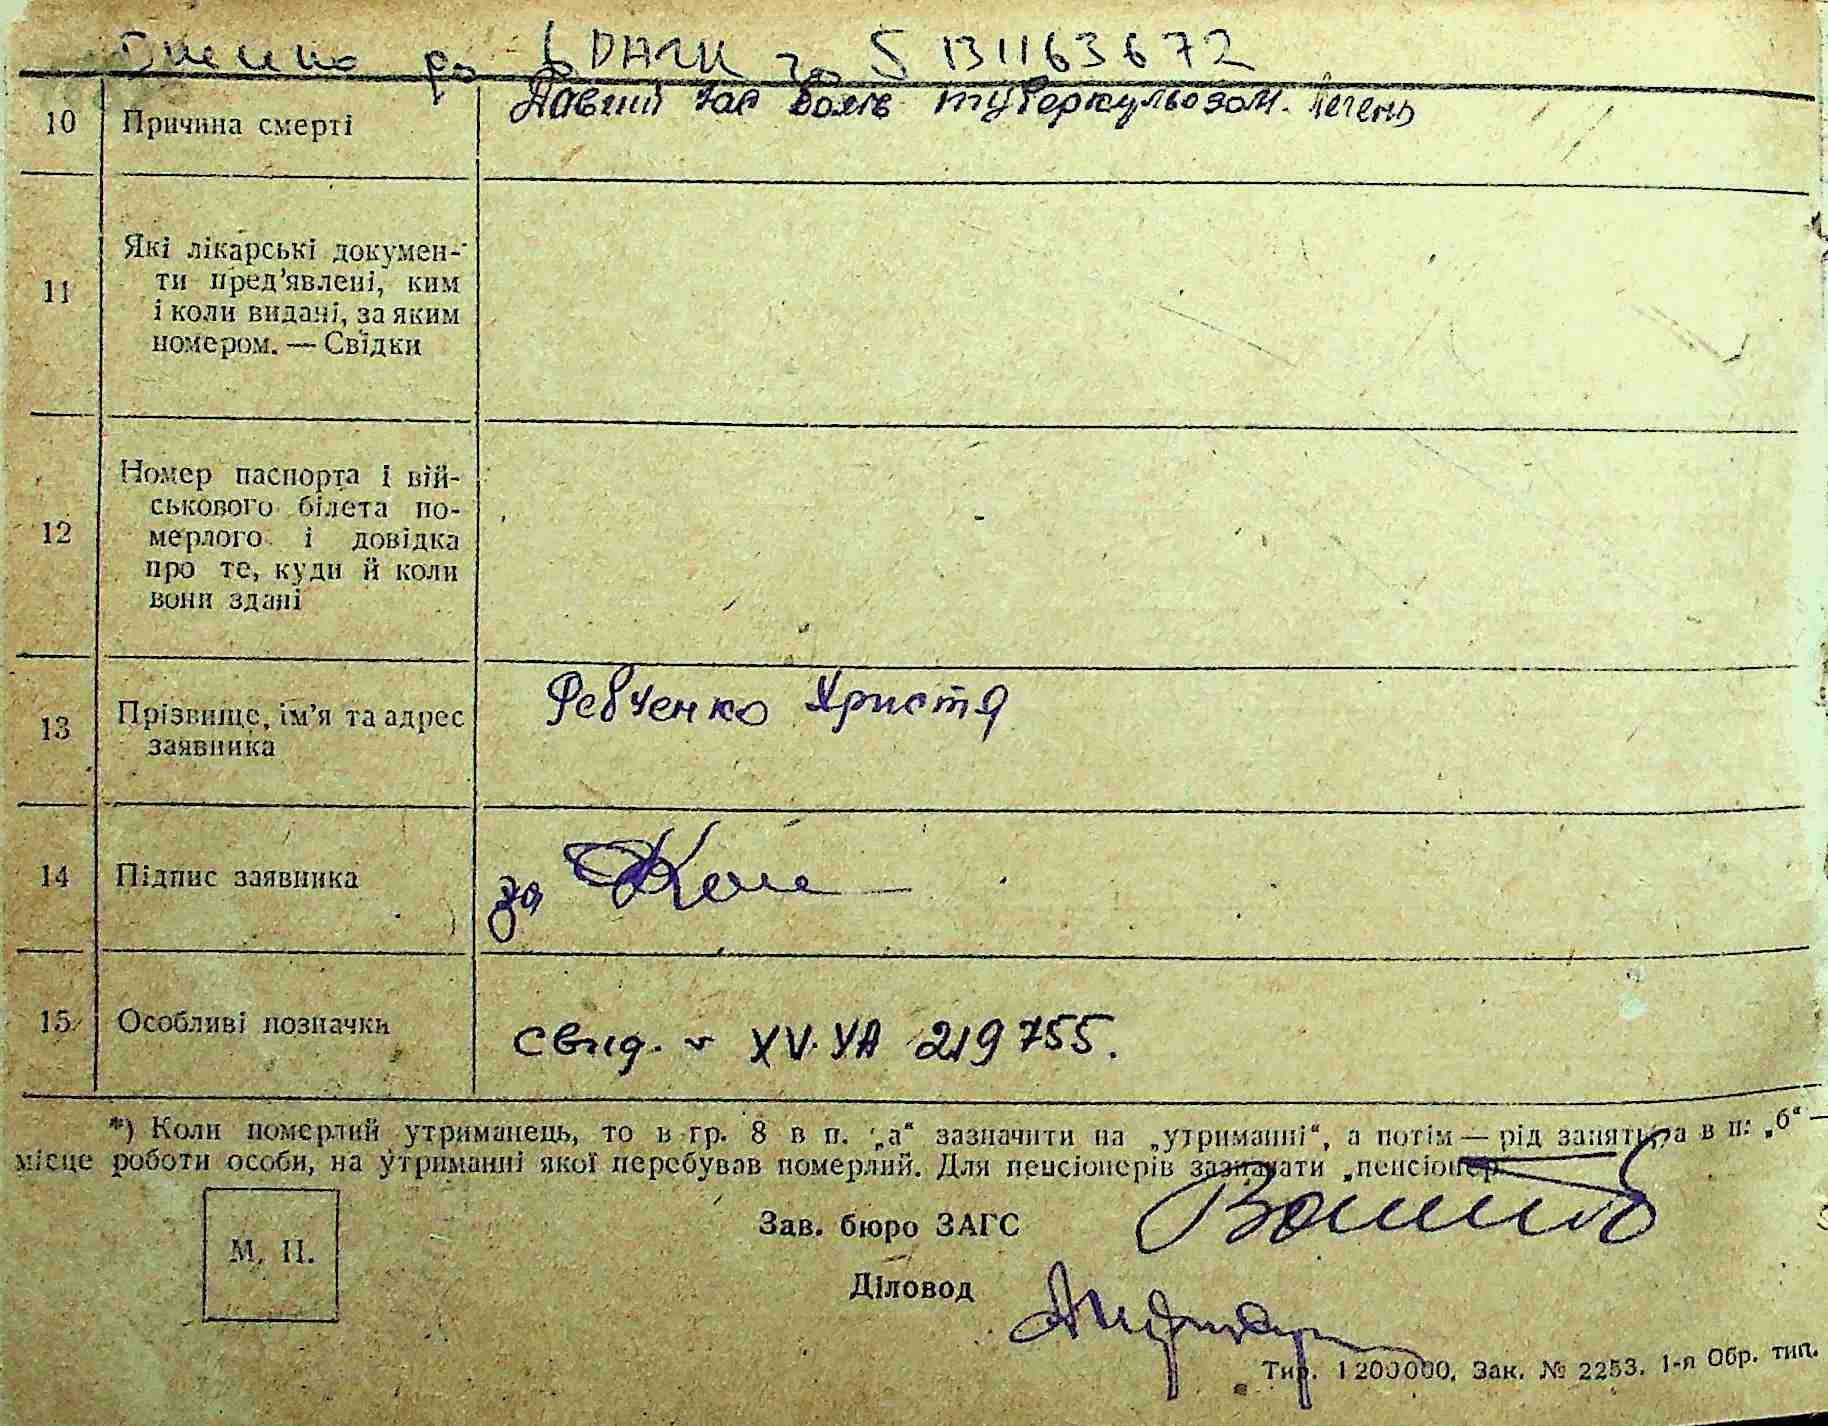 Внесено до ДРАЦС за S 1311636 72
10 Причина смерті Давний час болів туберкульозом легень
11 Які лікарські докумен-
ти пред'явлені, ким
і коли видані, за яким
номером. — Свідки
12 Номер паспорта і вій-
ськового білета по-
мерлого і довідка
про те, куди й коли
вони здані
13 Прізвище, ім'я та адрес Ревченко Христя
заявника
14 Підпис заявника за
15 Особливі позначки свид. XV. УА 219755.
*) Коли померлий утриманець, то в гр. 8 в п. „а“ зазначити на „утриманні“, а потім — рід заняття, а в п. „б“ —
місце роботи особи, на утриманні якої перебував померлий. Для пенсіонерів зазначати „пенсіонер“
Зав. бюро ЗАГС
М. П.
Діловод
Тир. 1200000. Зак. № 2253. 1-я Обр. тип.